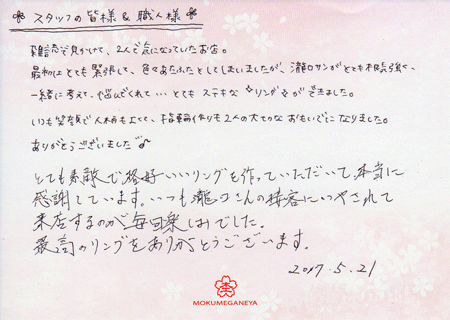 ✿ スタッフの皆様 & 職人様 ✿
雑誌で見かけて、2人で気になっていたお店。
最初はとても緊張して、色々あたふたとしてしまいましたが、瀧口サンがとても根気強く、
一緒に考えて、悩んでくれて… とても ステキな リング が できました。
いつも笑顔で人柄もよくて、指輪作りも2人の大切なおもいでになりました。
ありがとうございました
とても素敵で格好いいリングを作っていただいて、本当に
感謝しています。いつも瀧口さんの接客にいやされて
来店するのが毎回楽しみでした。
最高のリングをありがとうございます。
2017.5.21
MOKUMEGANEYA